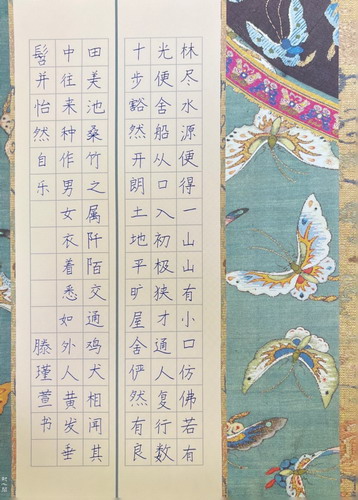 林尽水源便得一山山有小口仿佛若有
光便舍船从口入初极狭才通人复行数
十步豁然开朗土地平旷屋舍俨然有良
田美池桑竹之属阡陌交通鸡犬相闻其
中往来种作男女衣着悉如外人黄发垂
髫并怡然自乐 滕瑾萱书